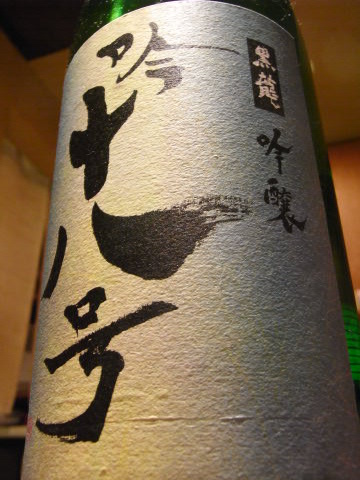 黒龍
吟醸
吟十八号